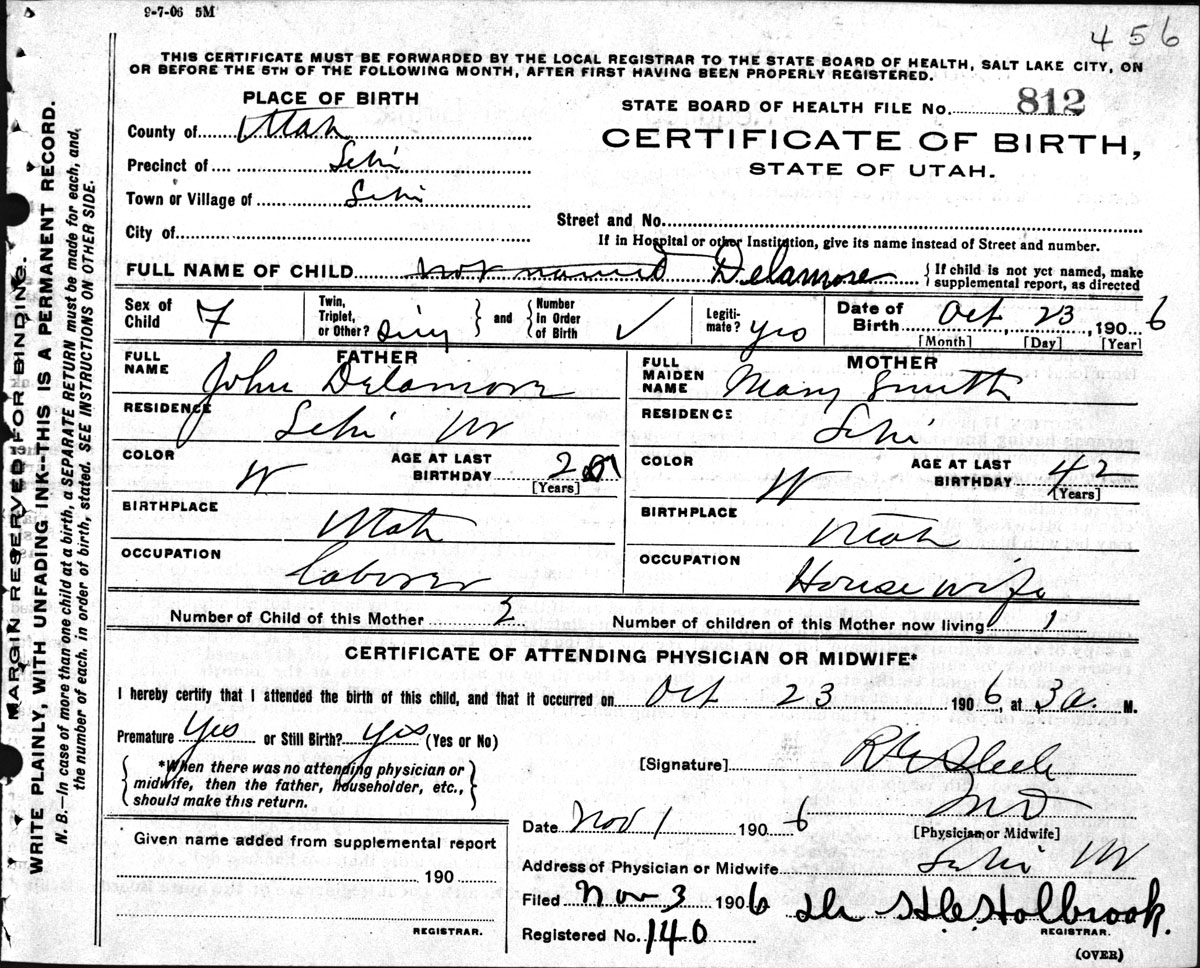 9-7-06 5M
456
THIS CERTIFICATE MUST BE FORWARDED BY THE LOCAL REGISTRAR TO THE STATE BOARD OF HEALTH, SALT LAKE CITY, ON
OR BEFORE THE 5TH OF THE FOLLOWING MONTH, AFTER FIRST HAVING BEEN PROPERLY REGISTERED.
MARGIN RESERVED FOR BINDING.
WRITE PLAINLY, WITH UNFADING INK--THIS IS A PERMANENT RECORD.
N. B.—In case of more than one child at a birth, a SEPARATE RETURN must be made for each, and,
the number of each. in order of birth, stated. SEE INSTRUCTIONS ON OTHER SIDE.
PLACE OF BIRTH
County of Utah
Precinct of Lehi
Town or Village of Lehi
City of
STATE BOARD OF HEALTH FILE No. 812
CERTIFICATE OF BIRTH,
STATE OF UTAH.
Street and No.
If in Hospital or other Institution, give its name instead of Street and number.
FULL NAME OF CHILD not named Delamore { If child is not yet named, make
supplemental report, as directed
Sex of Child F
Twin, Triplet, or Other? sing } and { Number in Order of Birth ✓
Legitimate? yes
Date of Birth Oct 23, 1906
[Month] [Day] [Year]
FATHER
FULL NAME John Delamore
RESIDENCE Lehi
COLOR W AGE AT LAST BIRTHDAY
[Years]
BIRTHPLACE Utah
OCCUPATION Laborer
MOTHER
FULL MAIDEN NAME Mary Smith
RESIDENCE Lehi
COLOR W AGE AT LAST BIRTHDAY 42
[Years]
BIRTHPLACE Utah
OCCUPATION Housewife
Number of Child of this Mother 2 Number of children of this Mother now living 1
CERTIFICATE OF ATTENDING PHYSICIAN OR MIDWIFE*
I hereby certify that I attended the birth of this child, and that it occurred on Oct 23 1906, at 3 a. M.
Premature yes or Still Birth? yes (Yes or No)
{ *When there was no attending physician or
midwife, then the father, householder, etc.,
should make this return. }
[Signature] Steele
MD
[Physician or Midwife]
Date Nov 1 1906
Address of Physician or Midwife Lehi
Given name added from supplemental report
190
REGISTRAR.
Filed Nov 3 1906 Holbrook.
REGISTRAR.
Registered No. 140
(OVER)